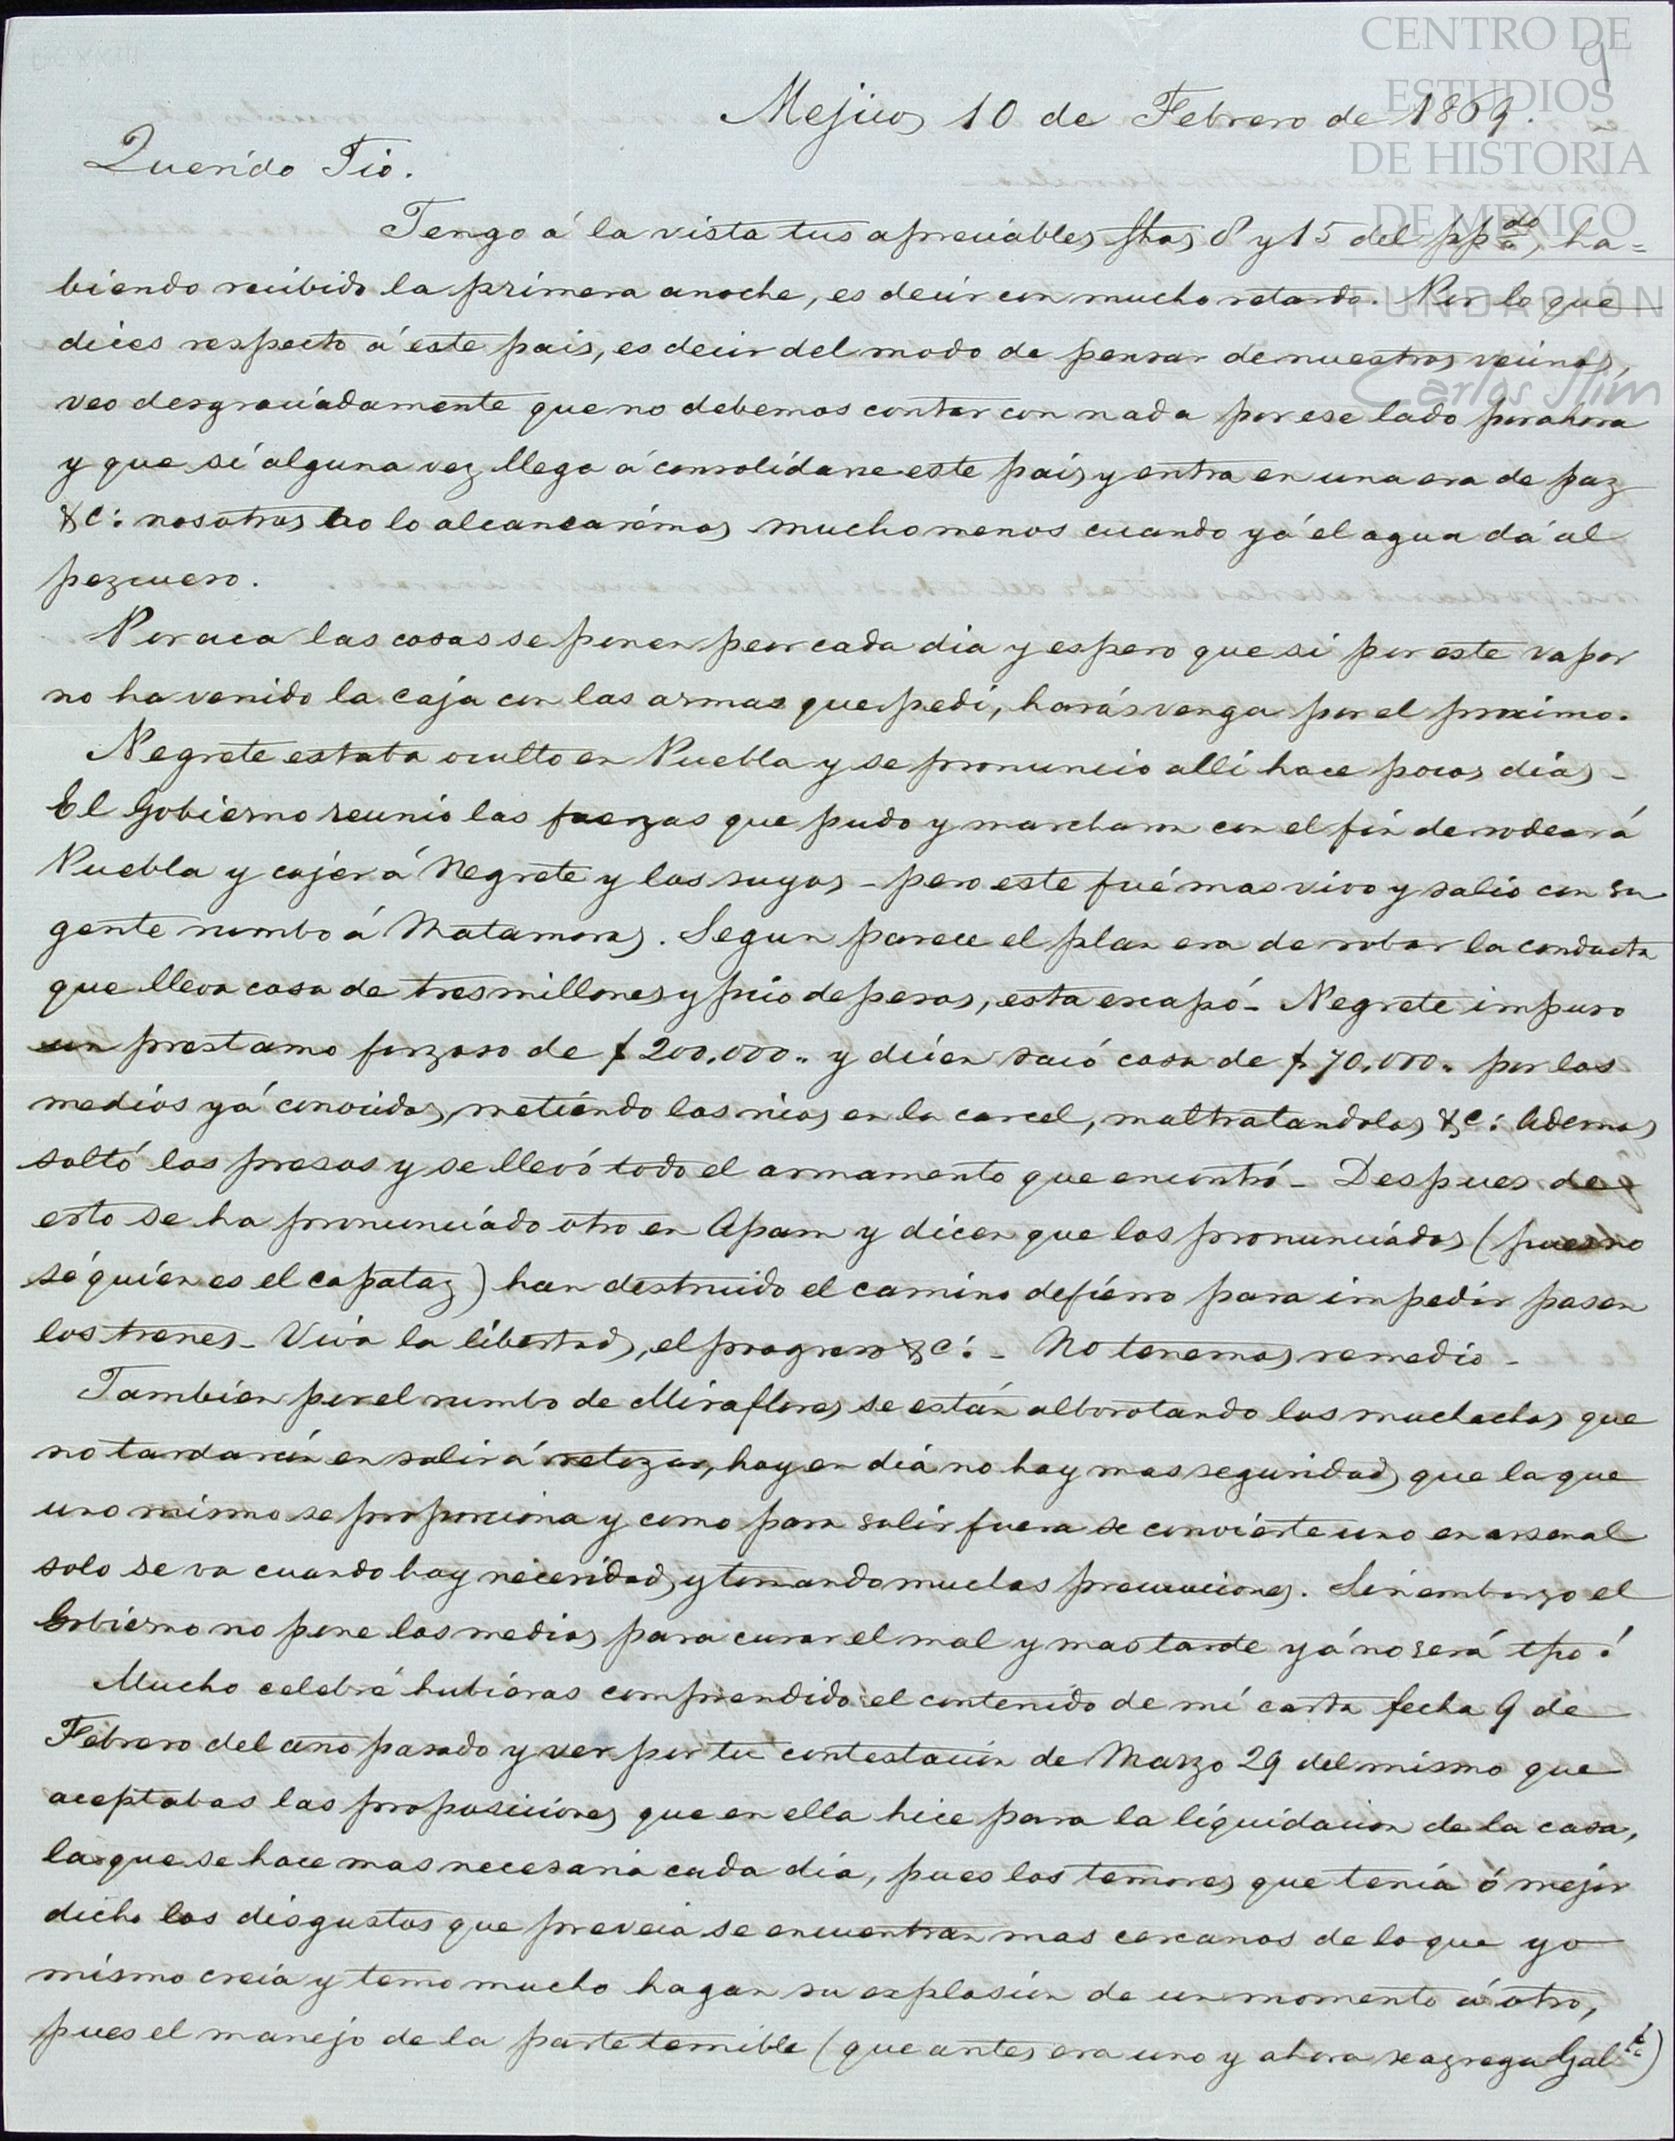 CENTRO DE
ESTUDIOS
DE HISTORIA
DE MÉXICO
FUNDACIÓN
Carlos Slim
9
Mejico, 10 de Febrero de 1869.
Querido Tio.
Tengo á la vista tus apreciables fhas 8 y 15 del pp.do, ha=
biendo recibido la primera anoche, es decir con mucho retardo. Por lo que
dices respecto á este pais, es decir del modo de pensar de nuestros vecinos,
veo desgraciadamente que no debemos contar con nada por ese lado por ahora
y que si alguna vez llega á consolidarse este pais y entra en una era de paz
&c: nosotros no lo alcanzarémos mucho menos cuando yá el agua dá al
pezcueso.
Por aca las cosas se ponen peor cada dia y espero que si por este vapor
no ha venido la caja con las armas que pedi, harás venga por el proximo.
Negrete estaba oculto en Puebla y se pronunció alli hace pocos dias_
El Gobierno reunió las fuerzas que pudo y marcharon con el fin de rodear á
Puebla y cojer á Negrete y los suyos _ pero este fué mas vivo y salió con su
gente rumbo á Matamoros. Segun parece el plan era de robar la conducta
que lleva cosa de tres millones y pico de pesos, esta escapó_ Negrete impuso
un prestamo forzoso de $ 200,000.. y dicen sacó cosa de $ 70,000.. por los
medios yá conocidos, metiendo los ricos en la carcel, maltratandolos &c: Ademas
soltó los presos y se llevó todo el armamento que encontró_ Despues de
esto se ha pronunciado otro en Apam y dicen que los pronunciados (pues no
sé quien es el capataz) han destruido el camino de fierro para impedir pasen
los trenes_ Viva la libertad, el progreso &c:_ No tenemos remedio_
Tambien por el rumbo de Miraflores se están alborotando los muchachos que
no tardarán en salir á retozar, hoy en dia no hay mas seguridad que la que
uno mismo se proporciona y como para salir fuera se convierte uno en arsenal
solo se va cuando hay necesidad y tomando muchas precauciones. Sin embargo el
Gobierno no pone los medios para curar el mal y mas tarde yá no será tpo!
Mucho celebré hubieras comprendido el contenido de mi carta fecha 9 de
Febrero del año pasado y ver por tu contestacion de Marzo 29 del mismo que
aceptabas las proposiciones que en ella hice para la liquidacion de la casa,
la que se hace mas necesaria cada dia, pues los temores que tenia ó mejor
dicho los disgustos que preveia se encuentran mas cercanos de lo que yo
mismo creia y temo mucho hagan su explosion de un momento á otro,
pues el manejo de la parte temible (que antes era uno y ahora se agrega Gab.)